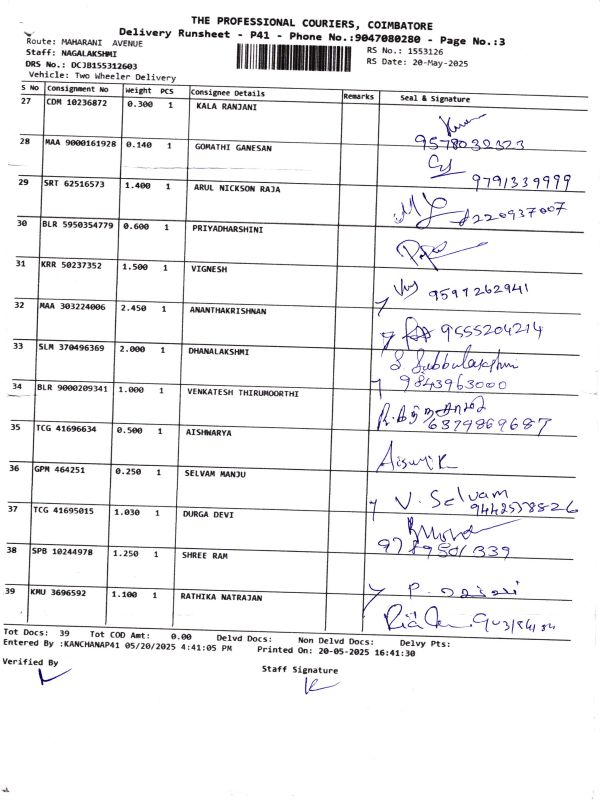 THE PROFESSIONAL COURIERS, COIMBATORE
Delivery Runsheet - P41 - Phone No.:9047080280 - Page No.:3
Route: MAHARANI AVENUE
RS No.: 1553126
Staff: NAGALAKSHMI
RS Date: 20-May-2025
DRS No.: DCJB155312603
Vehicle: Two Wheeler Delivery
S No Consignment No Weight PCS Consignee Details Remarks Seal & Signature
27 CDM 10236872 0.300 1 KALA RANJANI
9578032323
28 MAA 9000161928 0.140 1 GOMATHI GANESAN
9791339999
29 SRT 62516573 1.400 1 ARUL NICKSON RAJA
8220937007
30 BLR 5950354779 0.600 1 PRIYADHARSHINI
31 KRR 50237352 1.500 1 VIGNESH
9597262941
32 MAA 303224006 2.450 1 ANANTHAKRISHNAN
9555204214
33 SLM 370496369 2.000 1 DHANALAKSHMI
S Subbulakshmi
9843963000
34 BLR 9000209341 1.000 1 VENKATESH THIRUMOORTHI
6379869687
35 TCG 41696634 0.500 1 AISHWARYA
36 GPM 464251 0.250 1 SELVAM MANJU
V. Selvam
9442538826
37 TCG 41695015 1.030 1 DURGA DEVI
9789501339
38 SPB 10244978 1.250 1 SHREE RAM
39 KMU 3696592 1.100 1 RATHIKA NATRAJAN
Tot Docs: 39 Tot COD Amt: 0.00 Delvd Docs: Non Delvd Docs: Delvy Pts:
Entered By :KANCHANAP41 05/20/2025 4:41:05 PM Printed On: 20-05-2025 16:41:30
Verified By
Staff Signature